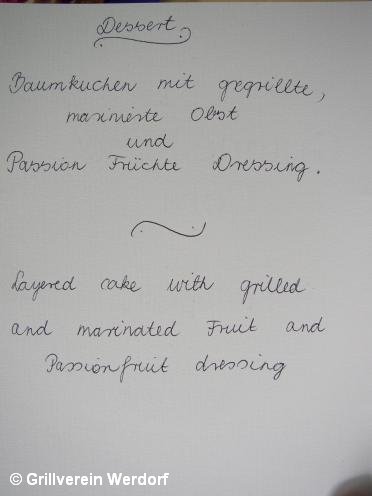 Dessert
Baumkuchen mit gegrillte,
marinierte Obst
und
Passion Früchte Dressing.
Layered cake with grilled
and marinated Fruit and
Passionfruit dressing
© Grillverein Werdorf